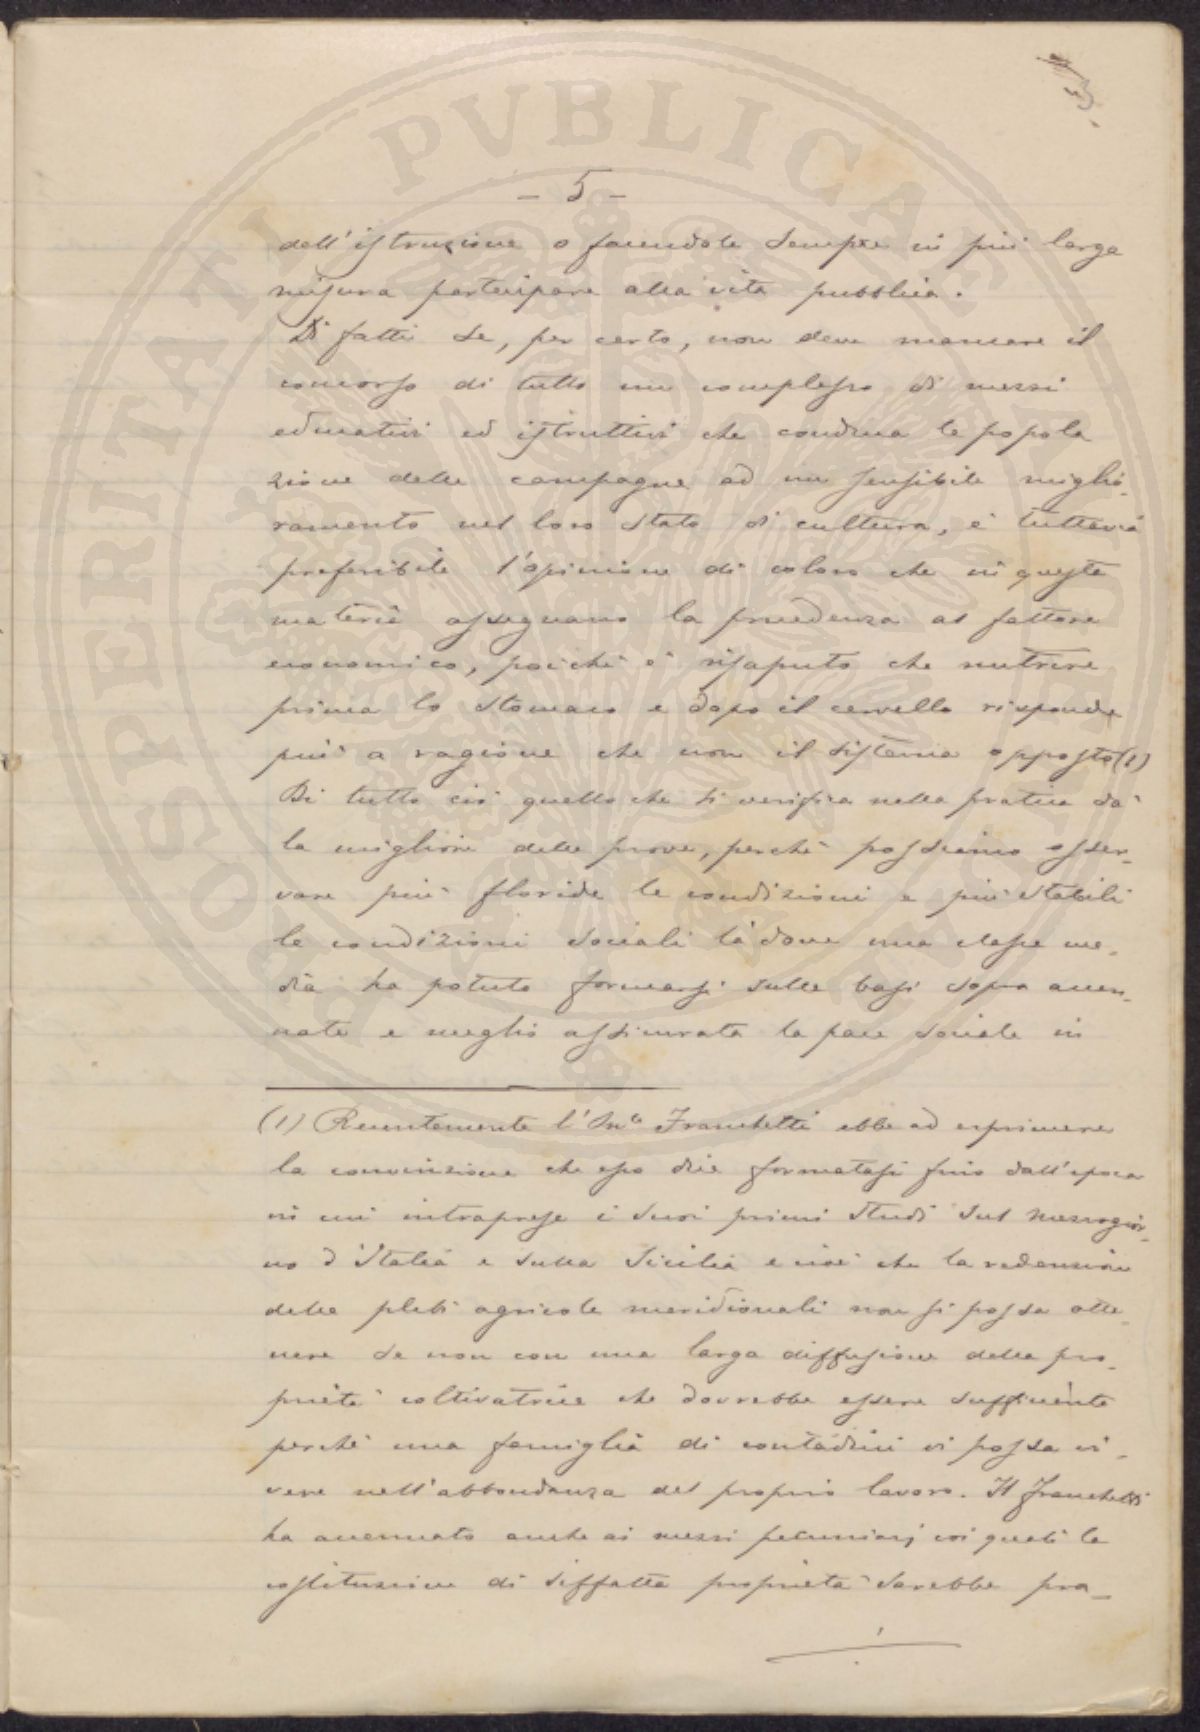 3.
– 5 –
dell'istruzione o facendole sempre in più larga
misura partecipare alla vita pubblica.
Di fatti se, per certo, non deve mancare il
concorso di tutto un complesso di mezzi
educativi ed istruttivi che conduca le popola
zione delle campagne ad un sensibile miglio-
ramento nel loro stato di cultura, è tuttavia
preferibile l'opinione di coloro che in queste
materie assegnano la precedenza al fattore
economico, poichè è risaputo che nutrire
prima lo stomaco e dopo il cervello risponde
più a ragione che non il sistema opposto (1)
Di tutto ciò quello che si verifica nella pratica dà
la migliore delle prove, perchè possiamo osser-
vare più floride le condizioni e più stabili
le condizioni sociali là dove una classe me-
dia ha potuto formarsi sulle basi sopra accen-
nate e meglio assicurata la pace sociale in
(1) Recentemente l'On.le Franchetti ebbe ad esprimere
la convinzione che esso dice formatasi fino dall'epoca
in cui intraprese i suoi primi studi sul mezzogior-
no d'Italia e sulla Sicilia e cioè che la redenzione
delle plebi agricole meridionali non si possa otte-
nere se non con una larga diffusione della pro-
prietà coltivatrice che dovrebbe essere sufficiente
perchè una famiglia di contadini vi possa vi-
vere nell'abbondanza del proprio lavoro. Il Franchetti
ha accennato anche ai mezzi pecuniarj coi quali la
costituzione di siffatta proprietà sarebbe pra-
PROSPERITATI PVBLICAE